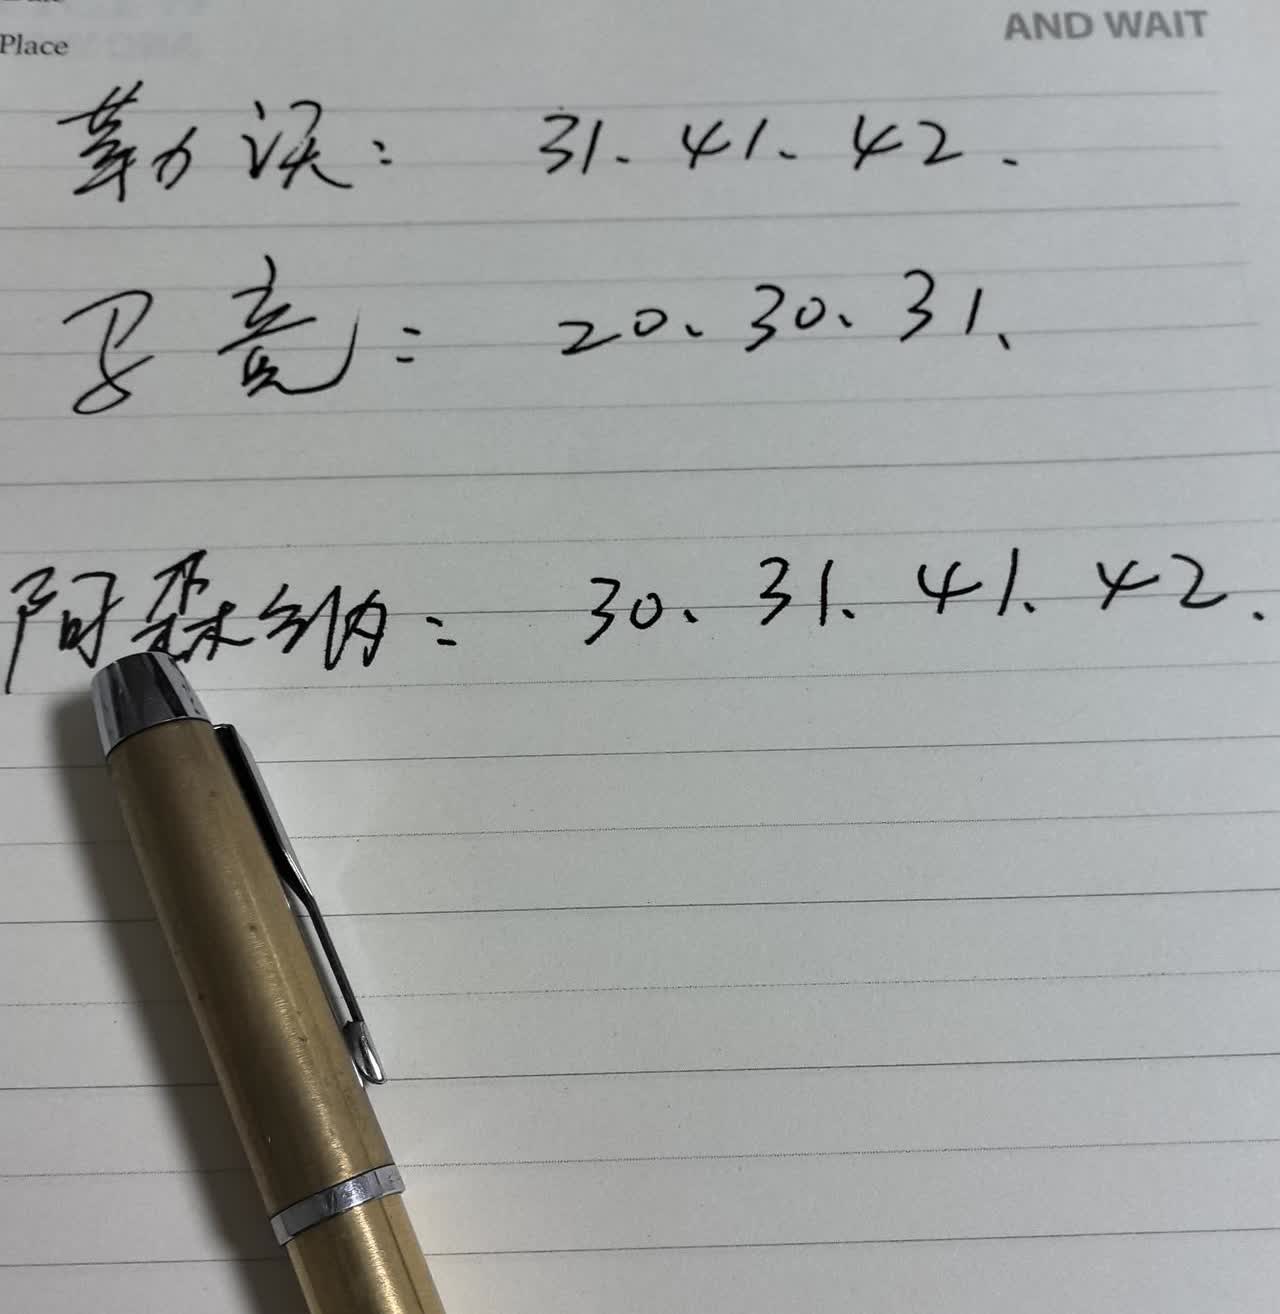 Place
AND WAIT
勒沃: 31、41、42、
马竞: 20、30、31、
阿森纳: 30、31、41、42.